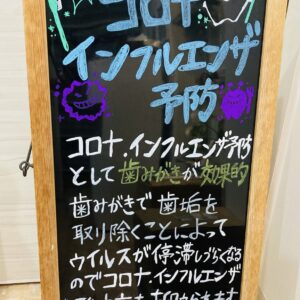 コロナ
インフルエンザ
予防
コロナ.インフルエンザ予防
として歯みがきが効果的
歯みがきで歯垢を
取り除くことによって
ウイルスが停滞しづらくなる
のでコロナ.インフルエンザ